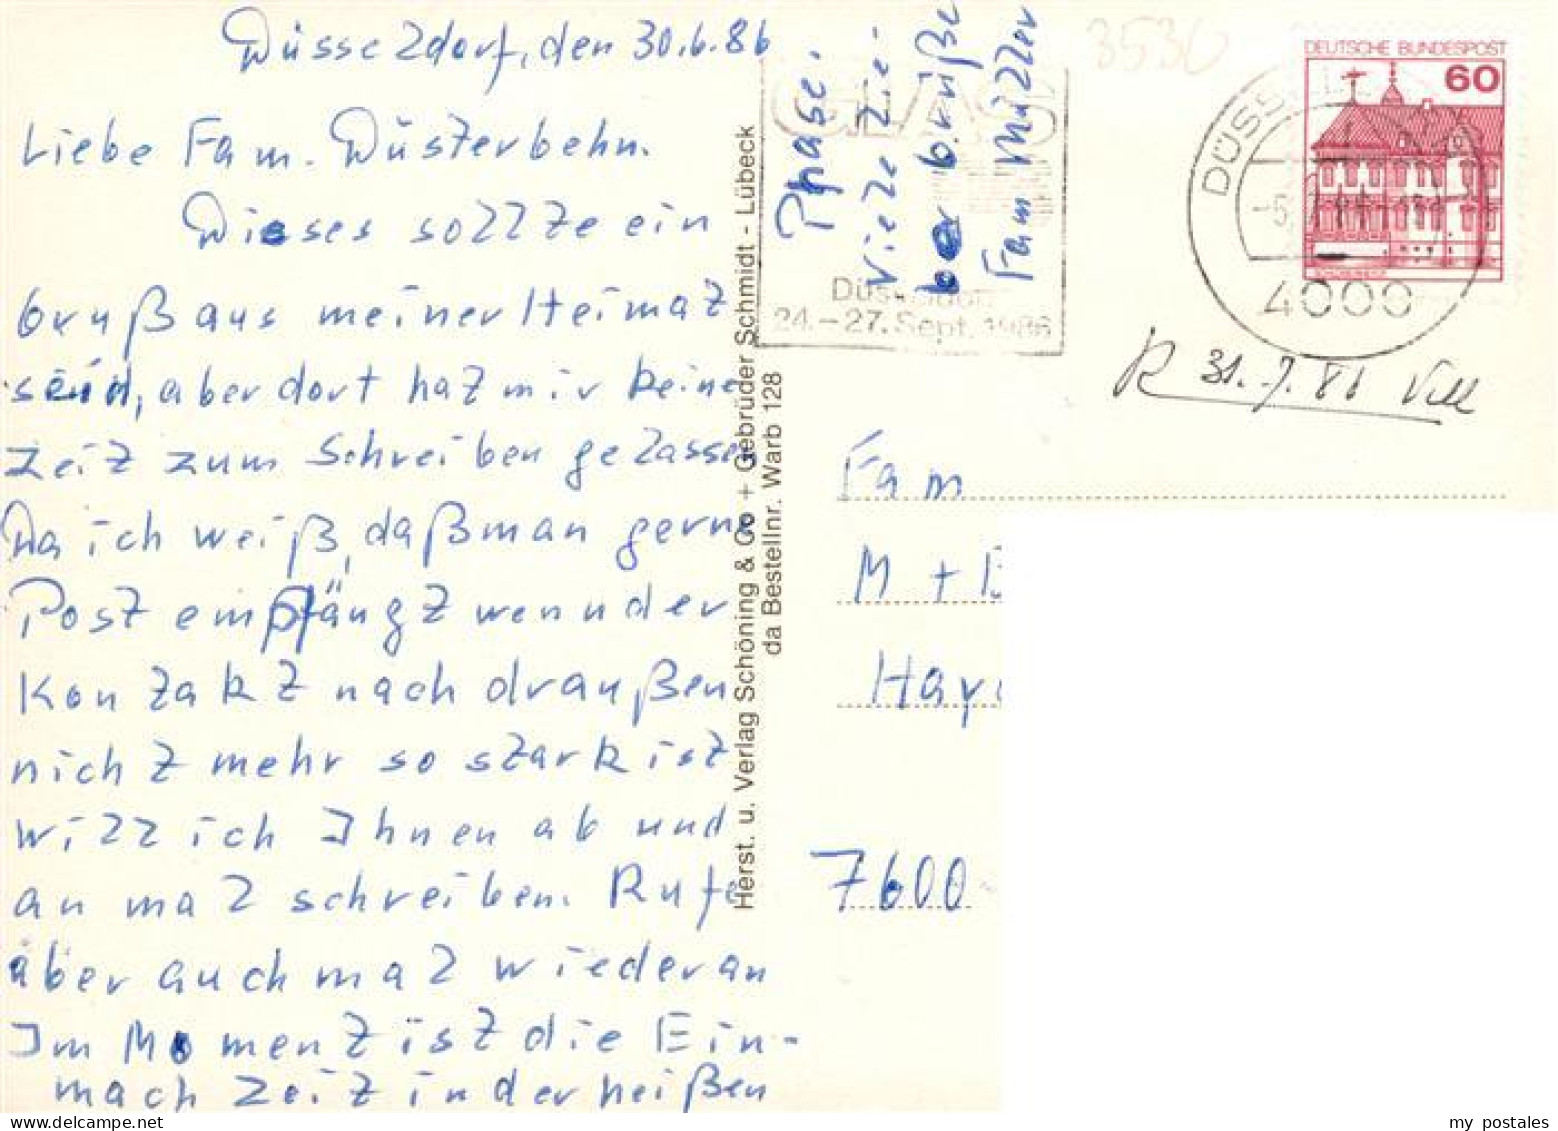 Düsseldorf, den 30.6.86
Liebe Fam. Düsterbehn.
Dieses sollte ein
Gruß aus meiner Heimat
seid, aber dort hat mir keine
Zeit zum Schreiben gelassen
Da ich weiß, daß man gerne
Post empfängt wenn der
Kontakt nach draußen
nicht mehr so stark ist
will ich Ihnen ab und
an mal schreiben. Rufe
aber auch mal wieder an
Im Moment ist die Ein-
mach Zeit in der heißen
Phase.
Viele lie-
ber Grüße
Fam Müller
Herst. u. Verlag Schöning & Co + Gebrüder Schmidt - Lübeck
da Bestellnr. Warb 128
3530
GLAS
Düsseldorf
24.-27. Sept. 1986
DEUTSCHE BUNDESPOST
60
DÜSS
4000
R 31.7.86
Fam
M + B
Hay
7600
my postales